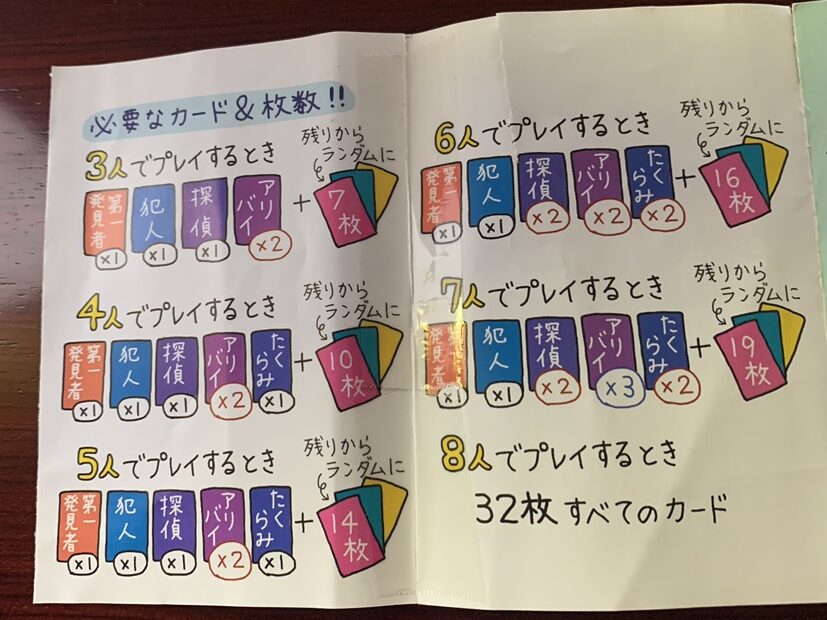 必要なカード&枚数!!
3人でプレイするとき
残りから
ランダムに
第一発見者 ×1
犯人 ×1
探偵 ×1
アリバイ ×2
+
7枚
4人でプレイするとき
残りから
ランダムに
第一発見者 ×1
犯人 ×1
探偵 ×1
アリバイ ×2
たくらみ ×1
+
10枚
5人でプレイするとき
残りから
ランダムに
第一発見者 ×1
犯人 ×1
探偵 ×1
アリバイ ×2
たくらみ ×1
+
14枚
6人でプレイするとき
残りから
ランダムに
第一発見者 ×1
犯人 ×1
探偵 ×2
アリバイ ×2
たくらみ ×2
+
16枚
7人でプレイするとき
残りから
ランダムに
第一発見者 ×1
犯人 ×1
探偵 ×2
アリバイ ×3
たくらみ ×2
+
19枚
8人でプレイするとき
32枚すべてのカード